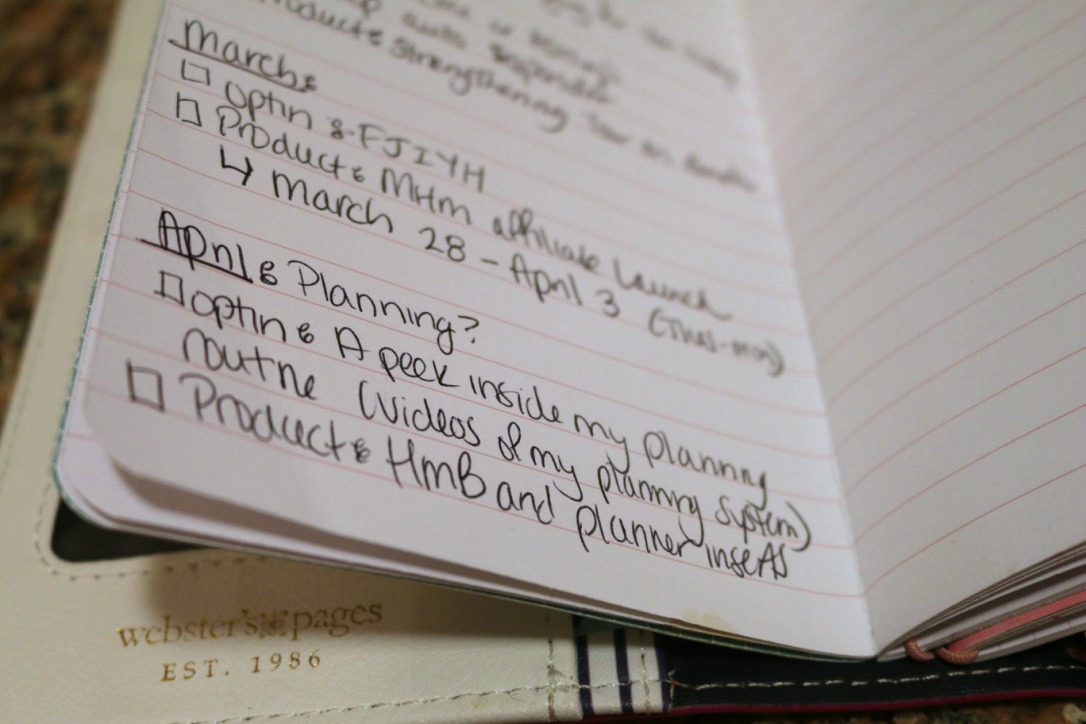 Product: Strengthening Your
March:
□ Optin :- FJIYH
□ Product: MHM affiliate launch
↳ March 28 - April 3 (Thurs-mon)
April: Planning?
□ Optin: A peek inside my planning
routine (videos of my planning system)
□ Product: HMB and planner inserts
webster's pages
EST. 1986